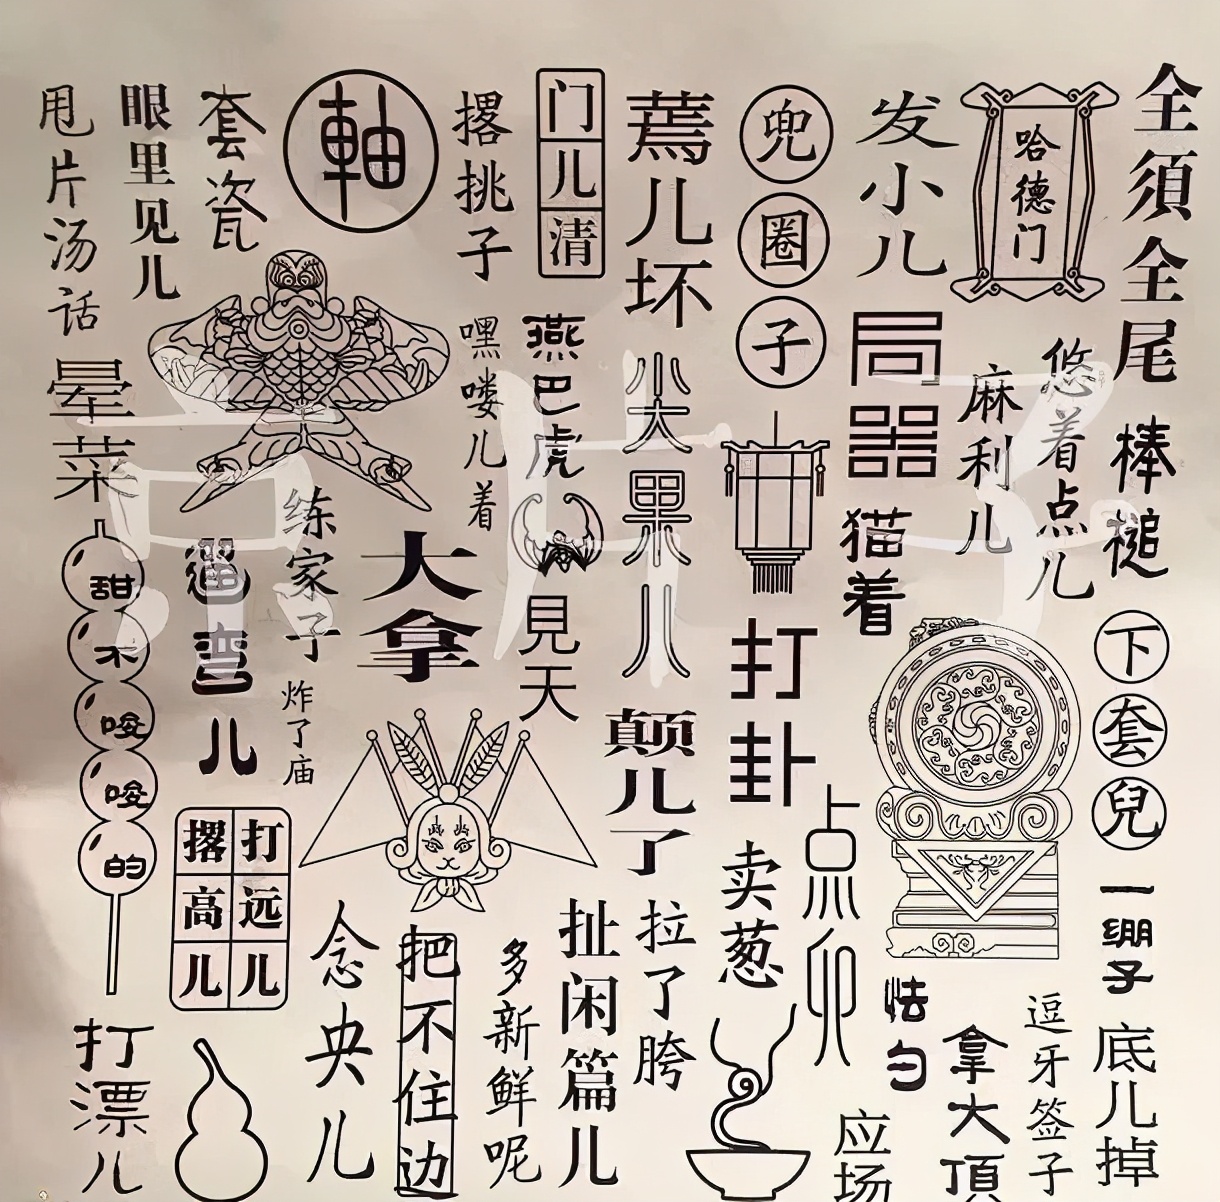 甩片汤话
眼里见儿
套瓷
軸
撂挑子
门儿清
蔫儿坏
兜圈子
发小儿
哈德门
全须全尾
晕菜
嘿喽儿着
燕巴虎
尖果儿
局器
麻利儿
悠着点儿
棒槌
甜不唆唆的
练家子
大拿
見天
猫着
打卦
下套兒
遛弯儿
炸了庙
颠儿了
点卯
卖葱
打远儿
撂高儿
念央儿
把不住边
多新鲜呢
扯闲篇儿
拉了胯
怯勺
一绷子
打漂儿
应场
拿大頂
逗牙签子
底儿掉